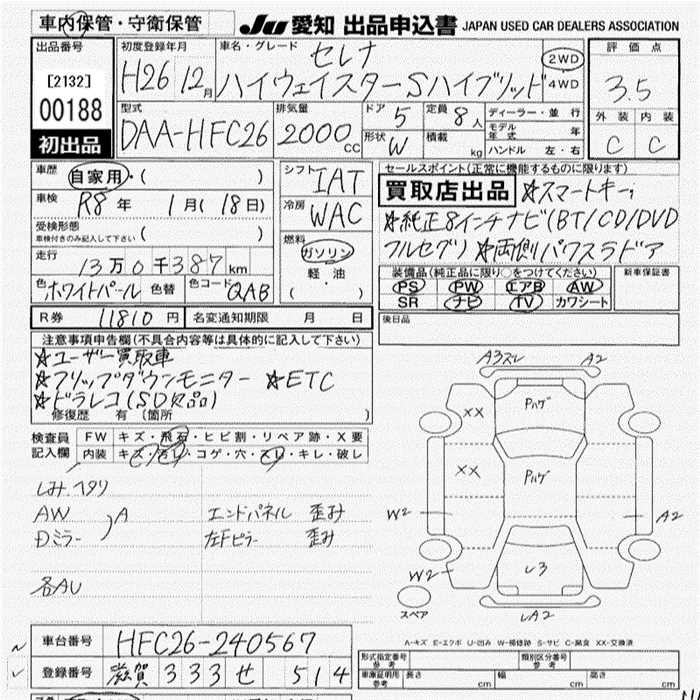 車内保管・守衛保管
JU 愛知 出品申込書 JAPAN USED CAR DEALERS ASSOCIATION
出品番号
[2132]
00188
初出品
初度登録年月
H26 12月
車名・グレード
セレナ
ハイウェイスターSハイブリッド
2WD
4WD
評価点
3.5
外装 内装
C C
型式
DAA-HFC26
排気量
2000cc
ドア 5
定員 8人
形状 W
積載 kg
ディーラー・並行
モデル年式 年
ハンドル 左・右
車歴 自家用・( )
車検 R8年 1月(18日)
受検形態 ( )
車検付きのみ記入して下さい
走行 13万0千387km
色 ホワイトパール 色替 色コード QAB
シフト IAT
冷房 WAC
燃料
ガソリン
軽・油
( ・ )
セールスポイント(正常に機能するものに限ります)
買取店出品 ☆スマートキー
☆純正8インチナビ(BT/CD/DVD
フルセグ) ☆両側パワスラドア
装備品(純正品に限り○をつけてください)
PS PW エアB AW
SR ナビ TV カワシート
新車保証書
後日品
R券 11810円 名変通知期限 月 日
注意事項申告欄(不具合内容等は具体的に記入して下さい)
☆ユーザー買取車
☆フリップダウンモニター ☆ETC
☆ドラレコ(SD欠品)
修復歴 有 (箇所 )
検査員
記入欄
FW キズ・飛石・ヒビ割・リペア跡・X要
内装 キズ・汚レ・コゲ・穴・スレ・キレ・破し
しみ.ヘタリ
AW
Dミラー
A
エンドパネル 歪み
左Fピラー 歪み
各AU
A3スレ A2
XX
Pハゲ
XX
Pハゲ
W2
A2
W2
し3
スペア
LA2
A-キズ E-エクボ U-凹み W-補修跡 S-サビ C-腐食 XX-交換済
車台番号 HFC26-240567
登録番号 滋賀 333 せ 514
形式指定番号 参考
類別区分番号 参考
車庫証明用 参考
長さ cm 幅 cm 高さ cm